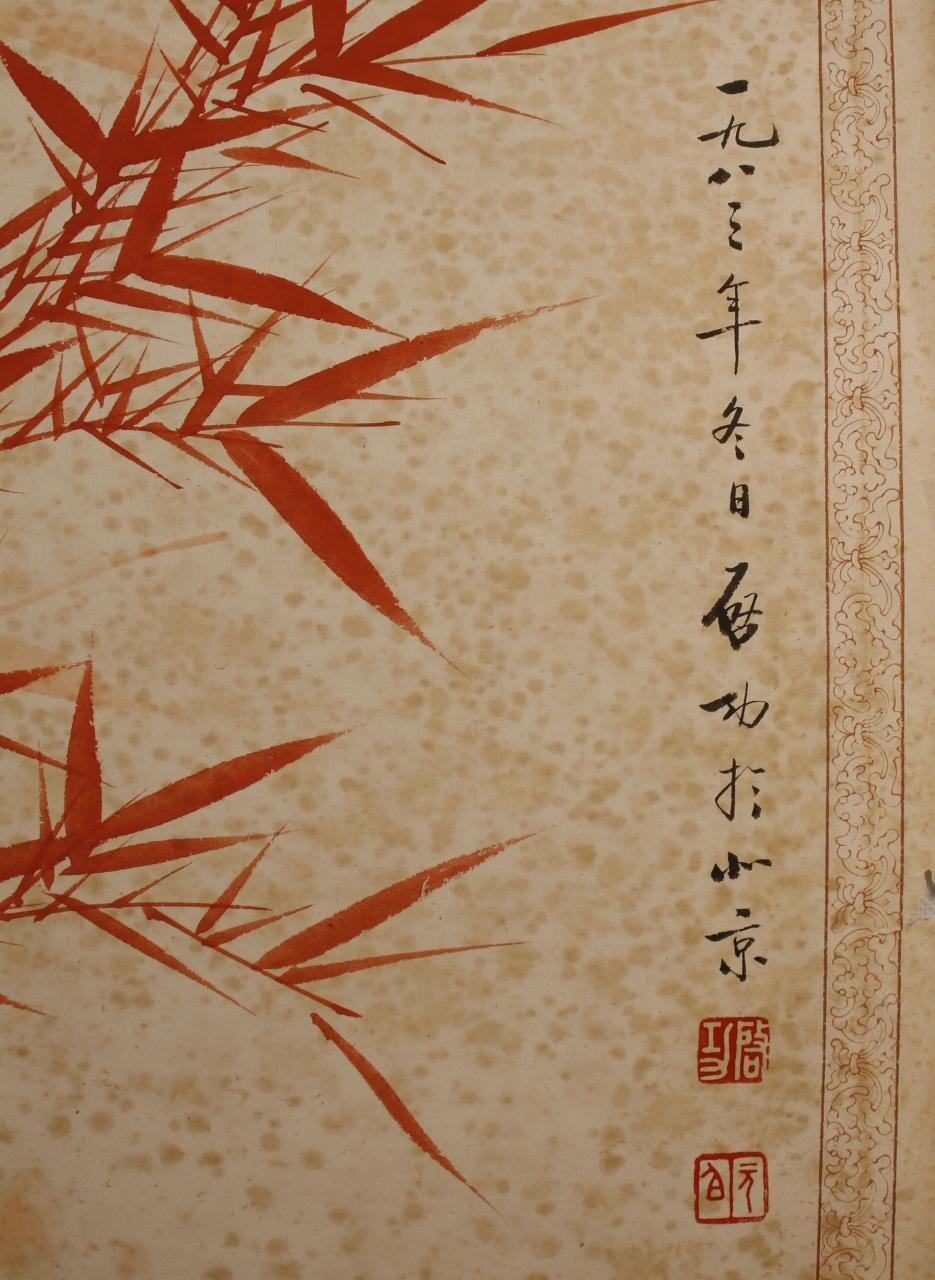 一九八三年冬日启功於北京
啟功
元白